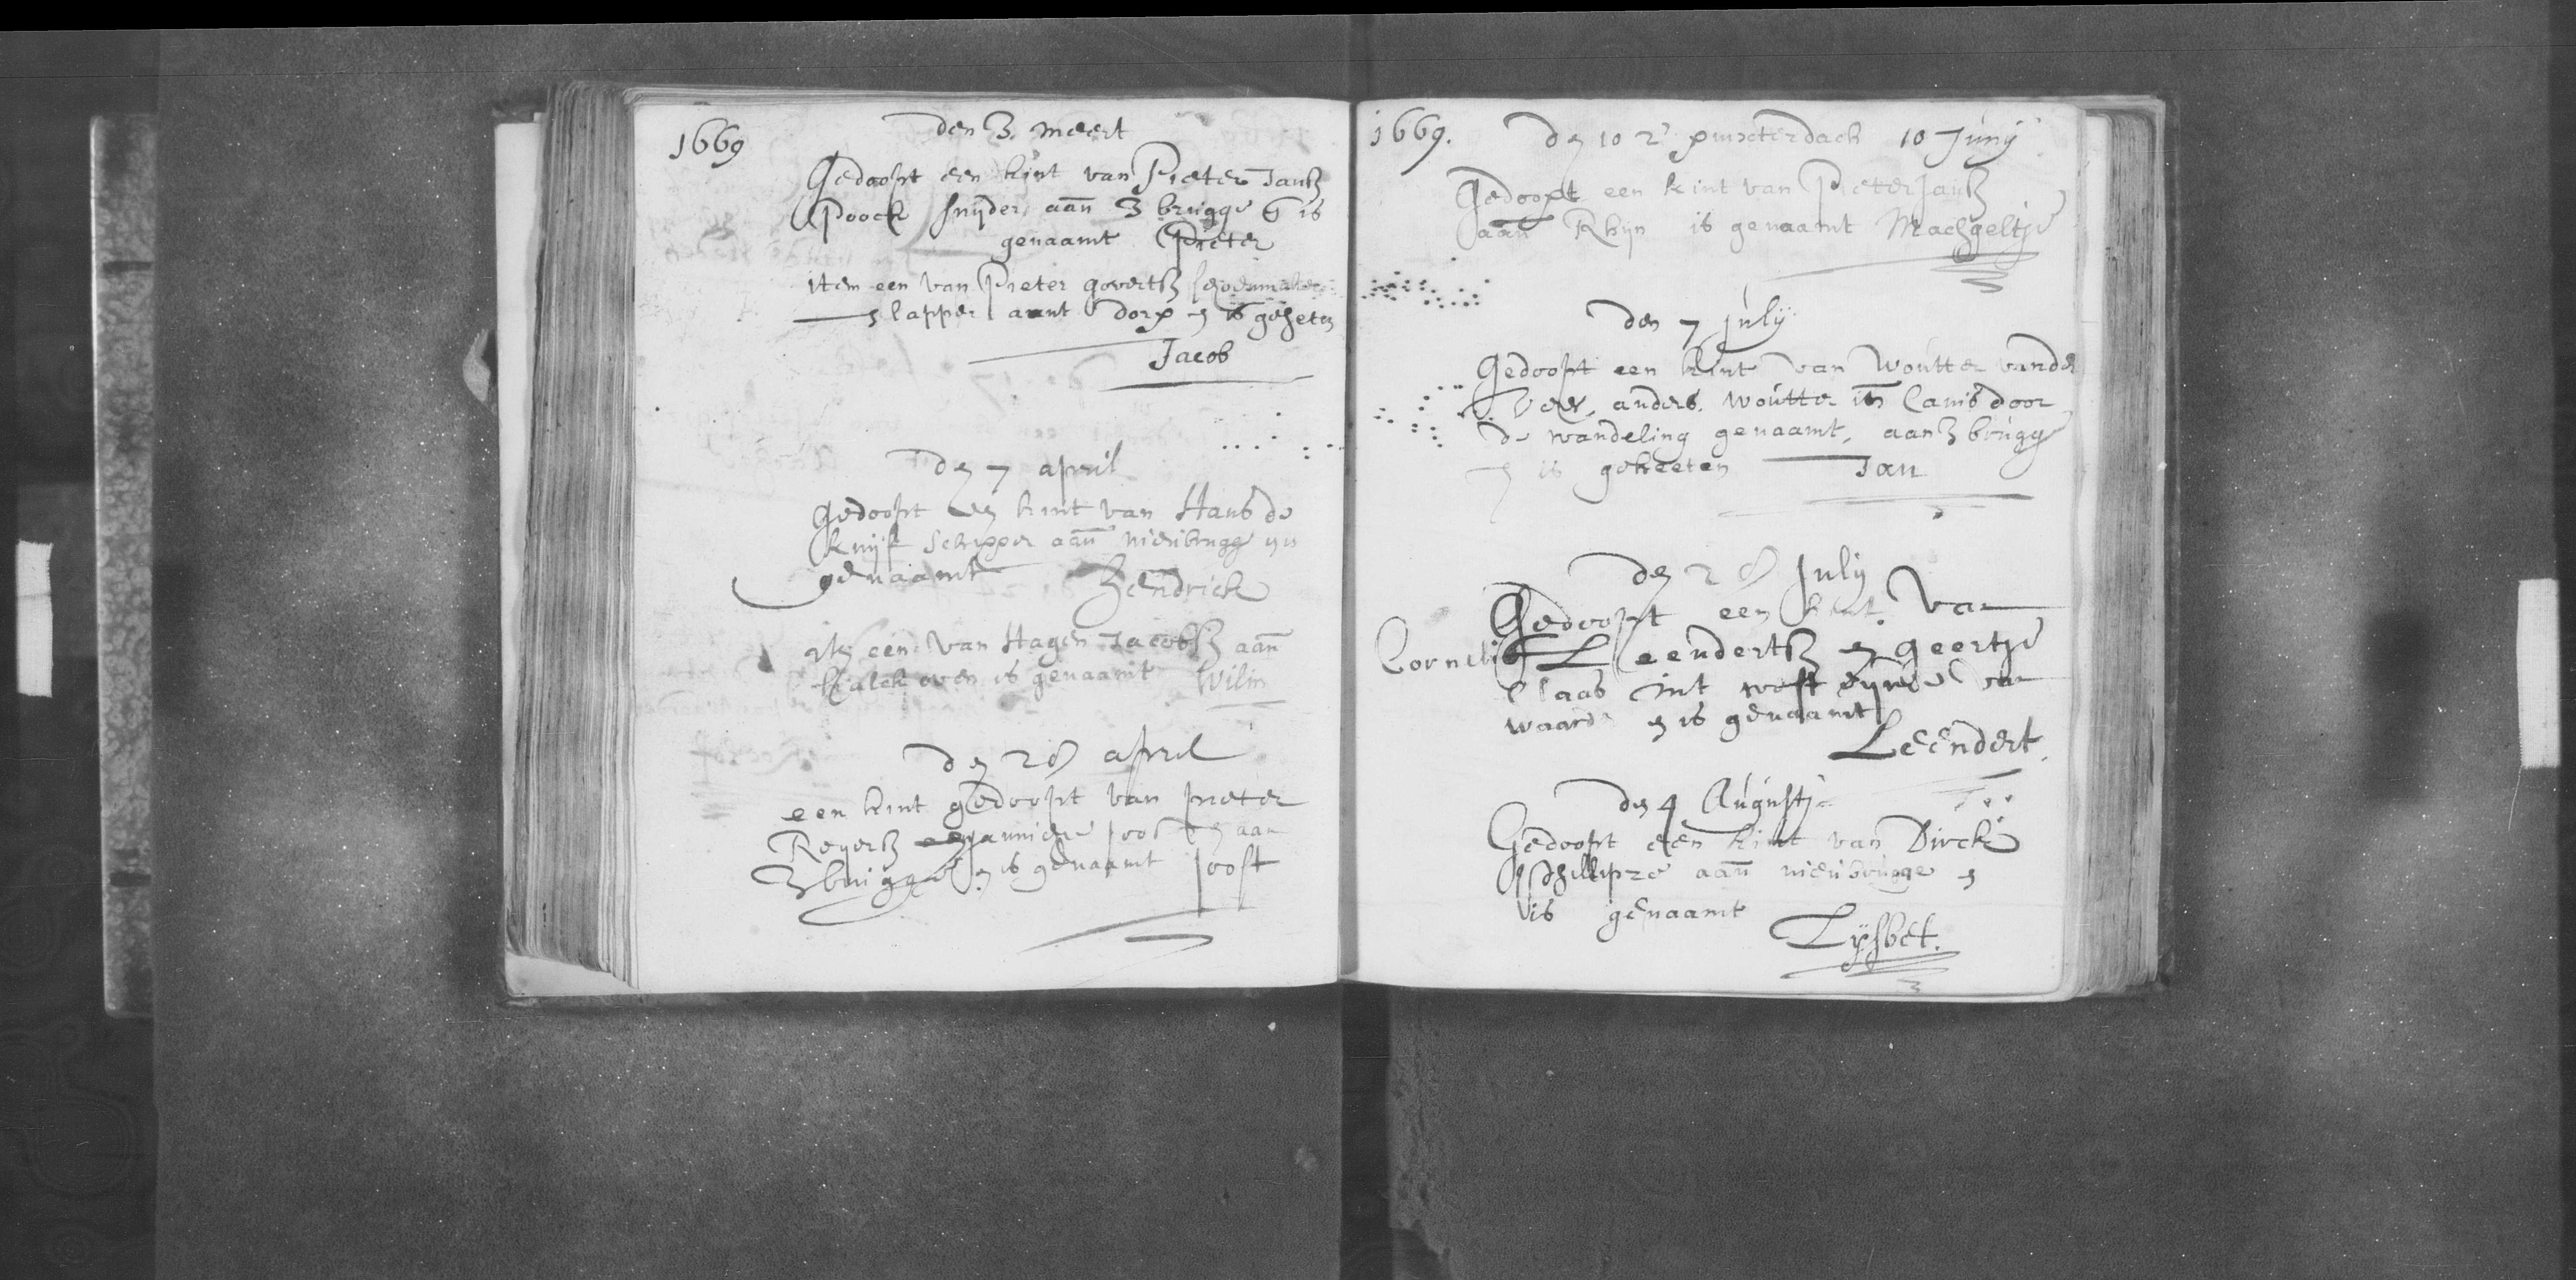 1669
den 3. meert
Gedoopt een kint van Pieter Jansz
Poock snijder aan 3 brugge is
genaamt Pieter
item een van Pieter govertsz
lapper aant dorp is geheten
Jacob
den 7 april
gedoopt een kint van Hans de
knijf schipper aan nieubrugg
genaamt Hendrick
een van Hagen Jacobsz aan
kalckoven is genaamt Wilm
den 28 april
een kint gedoopt van pieter
Reyersz aan
3brugge is genaamt Joost
1669.
den 10 2e pinxterdach 10 Junij
Gedoopt een kint van Pieter Jansz
aan Rhijn is genaamt Machgeltje
den 7 july
Gedoopt een kint van Woutter vander
veer, anders. Woutter door
de wandeling genaamt, aan 3 brugg
is geheeten Jan
den 28 July
Gedoopt een kint. van
Cornelis Leendertsz en geertje
Claas int west eynde van
waarde en is genaamt
Leendert.
den 4 Augusti
Gedoopt een kint van Dirck
aan nieubrugge en
is genaamt
Lysbet.